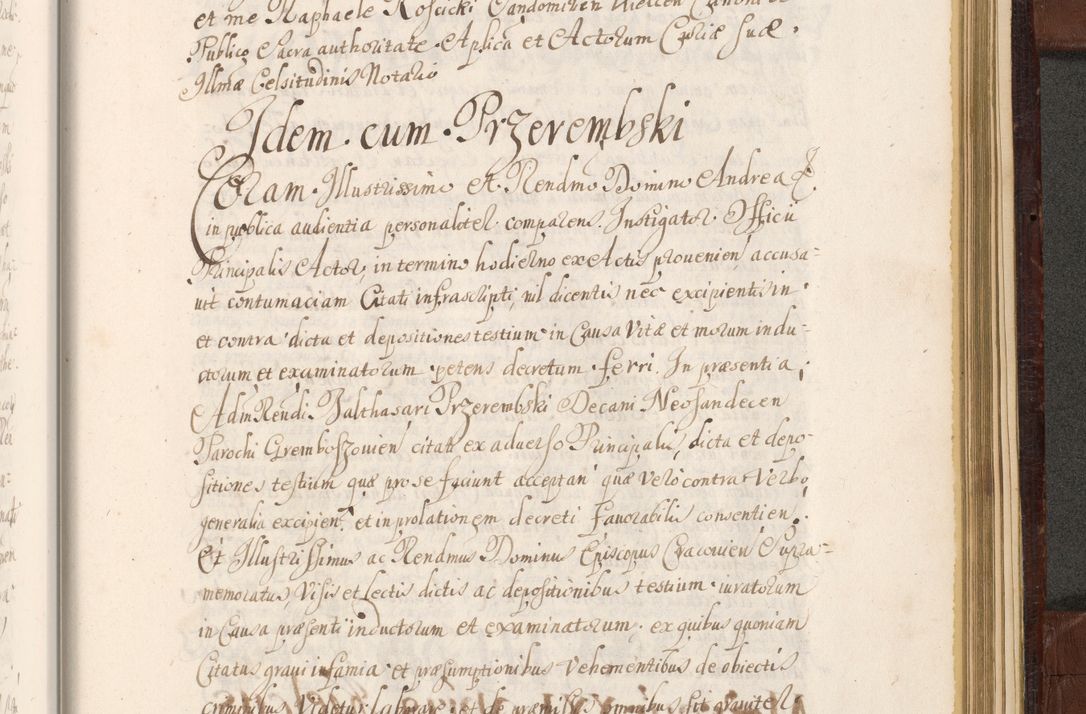 et me Raphaele Roscicki Sandomirien Vielicen Canonico
Publico Sacra authoritate Aplica et Actorum Curiæ suæ
Illmæ Celsitudinis Notario
Idem cum Przerembski
Coram Illustrissimo et Rendmo Domino Andrea &
in publica audientia personaliter comparens Instigator Officii
Principalis Actor, in termino hodierno ex Actis provenien, accusa-
vit contumaciam Citati infrascripti, nil dicentis nec excipientis in
et contra dicta et depositiones testium in Causa Vitæ et morum indu-
ctorum et examinatorum petens decretum ferri. In præsentia
Adm Rendi Balthasari Przerembski Decani Neosandecen
Parochi Gremboszovien citati ex adverso Principalis, dicta et depo-
sitiones testium quæ pro se faciunt acceptan quæ vero contra Verbo
generalia excipien, et in prolationem decreti favorabilis consentien.
Et Illustrissimus ac Rendmus Dominus Episcopus Cracovien Supra-
memoratus, Visis et lectis dictis ac depositionibus testium iuratorum
in Causa præsenti inductorum et examinatorum, ex quibus quoniam
Citatus gravi infamia et præsumptionibus vehementibus de obiectis
criminibus Videtur laborare et de præmissis omnibus sit graviter